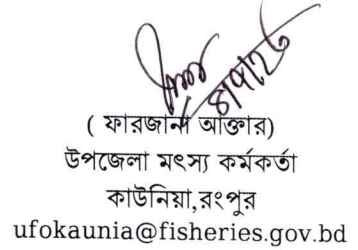 ( ফারজানা আক্তার)
উপজেলা মৎস্য কর্মকর্তা
কাউনিয়া,রংপুর
ufokaunia@fisheries.gov.bd